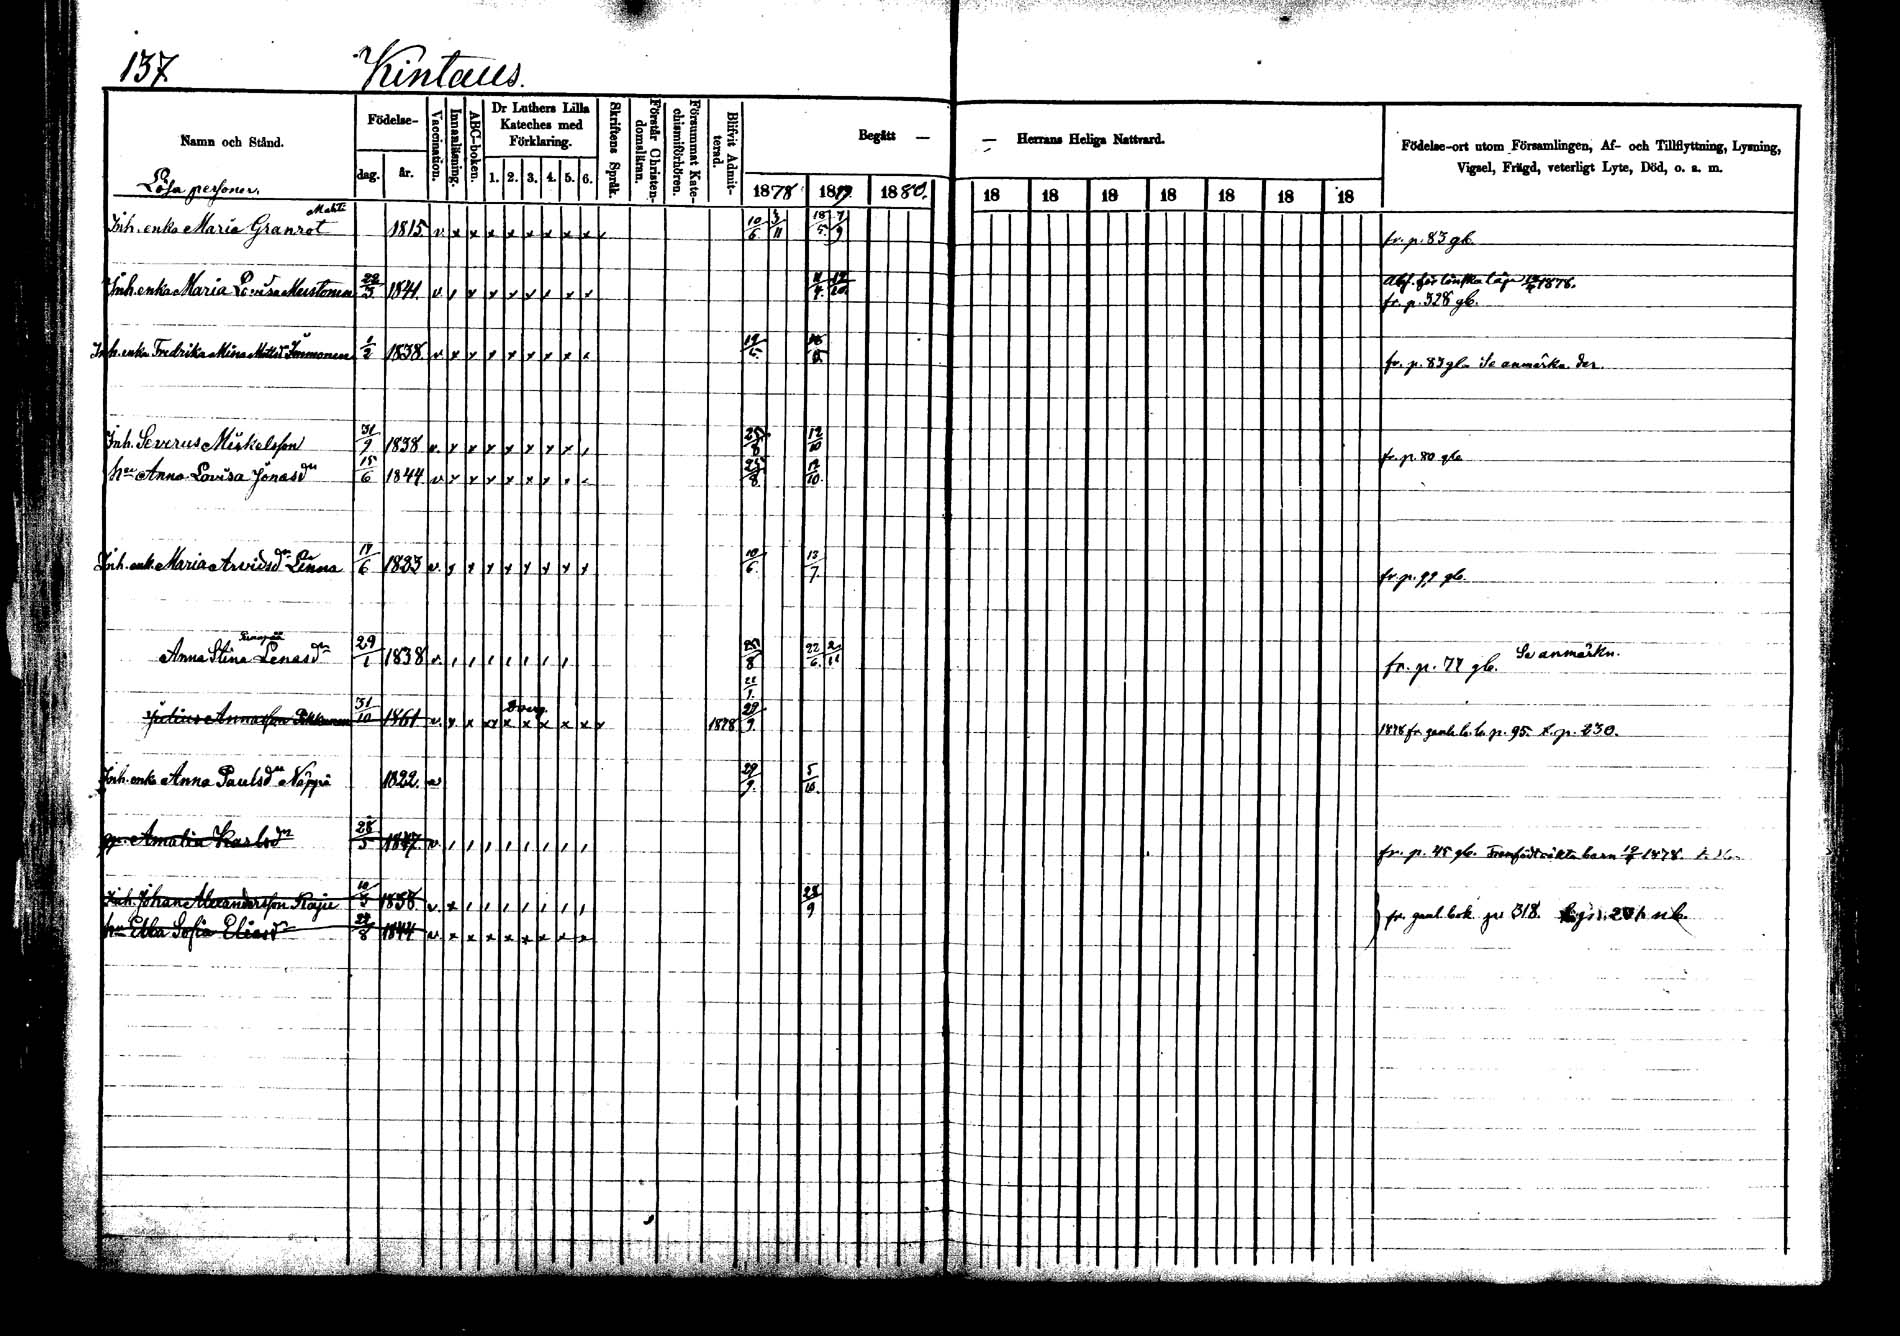 137.
Kintaus.
Namn och Stånd.
Födelse-
dag.
år.
Vaccination.
Innanläsning.
ABC-boken.
Dr Luthers Lilla Kateches med Förklaring.
1. 2. 3. 4. 5. 6.
Skriftens Språk.
Förstår Christendomsläran.
Försummat Katechismiförhören.
Blifvit Admitterad.
Begått —
— Herrans Heliga Nattvard.
1878 1879. 1880. 18 18 18 18 18 18 18
Födelse-ort utom Församlingen, Af- och Tillflyttning, Lysning,
Vigsel, Frägd, veterligt Lyte, Död, o. s. m.
Lösa personer.
Inh. enka Maria Granrot 1815. v. x x x x x x x x x 10/6 3/11 18/5 7/9 fr. p. 83 gb.
Inh. enka Maria Lovisa Mustonen 22/3 1841. v 12/10. 1878.
fr. p. 328 gb.
Inh. enka Fredrika Mina Immonen 1/2 1838. v fr. p. 83 gb. Se anmärkn. der.
Inh. Severus Mickelsson 31/7 1838 v. 25/8 12/10 fr. p. 80 gb.
hu Anna Lovisa Jonasdr 15/6 1844 v 25/8. 12/10.
Inh. enk. Maria Arvidsdr Linna 17/6 1823 v. 10/6. 13/7. fr. p. 99 gb.
Anna Stina Lenasdr 29/1 1838 v. 25/8 22/6. 2/11 fr. p. 77 gb. Se anmärkn.
Julius Annasson Pikkanen 31/10 1861 v. 1878 29/9. 1878 fr. gamla b. p. 95. t. p. 230.
Inh. enka Anna Paulsdr Näppi 1822. v 29/9. 5/10.
Amalia Karlsdr 28/5 1847. v fr. p. 45 gb. Framfödt oäkta barn 1878.
Inh. Johan Alexandersson 1838 v. 28/9 fr. gaml. bok p. 318.
hu Ebba Sofia Eliasdr 22/8 1844 v.